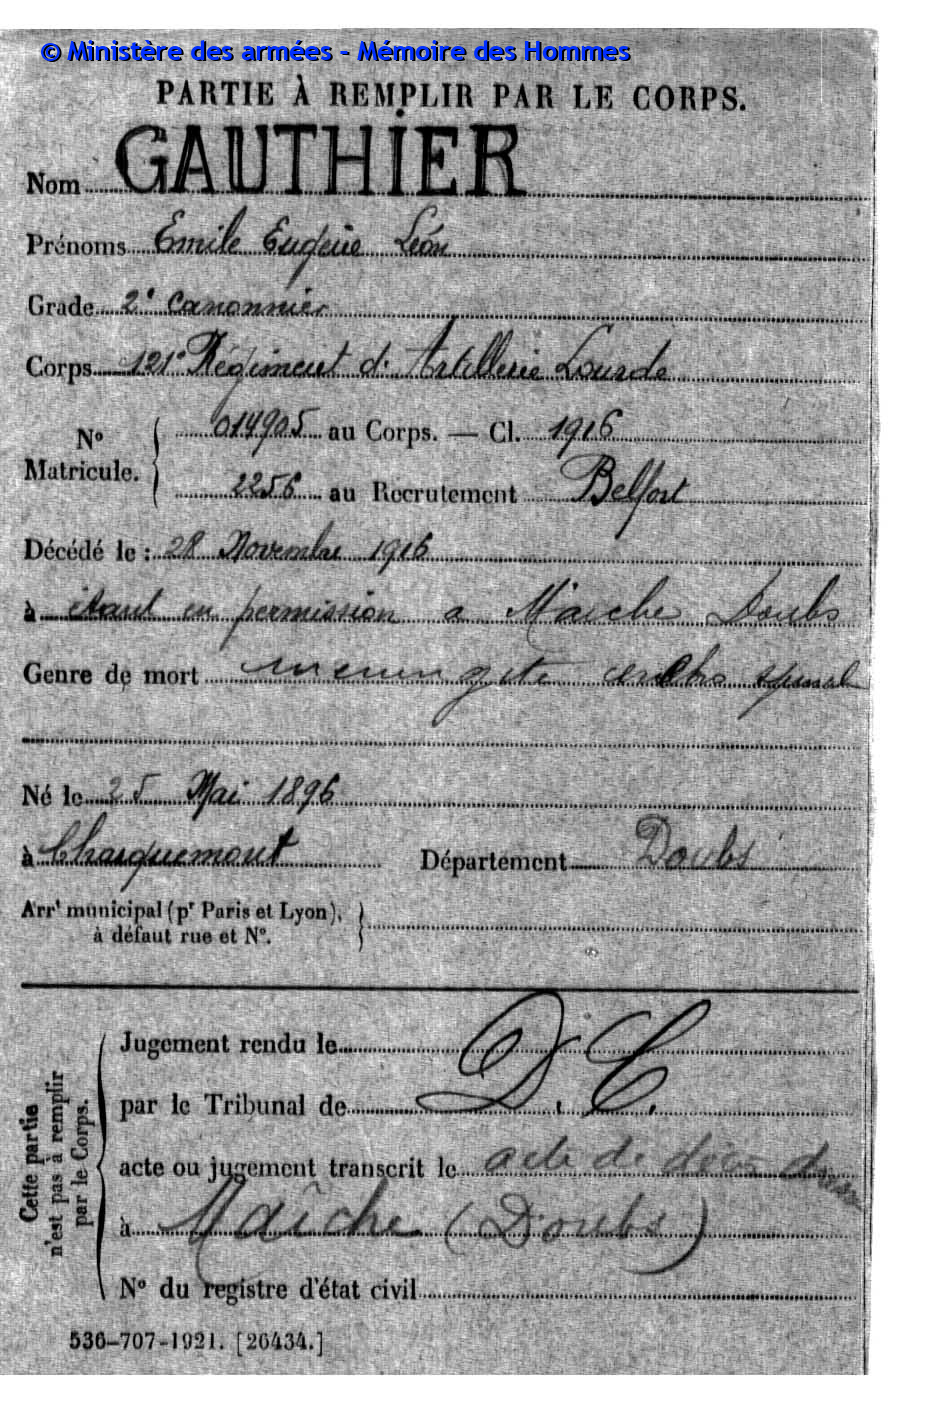 © Ministère des armées - Mémoire des Hommes
PARTIE À REMPLIR PAR LE CORPS.
Nom GAUTHIER
Prénoms Emile Eugène Léon
Grade 2e Canonnier
Corps 121e Régiment d'Artillerie Lourde
No Matricule. { 014905 au Corps. — Cl. 1916
2256 au Recrutement Belfort
Décédé le : 28 Novembre 1916
à étant en permission a Maiche Doubs
Genre de mort meningite cerebro spinal
Né le 25 Mai 1896
à Charquemont Département Doubs
Arrt municipal (pr Paris et Lyon),
à défaut rue et No.
Cette partie
n'est pas à remplir
par le Corps.
Jugement rendu le
par le Tribunal de D. C.
acte ou jugement transcrit le acte de décès dressé
à Maîche (Doubs)
No du registre d'état civil
536-707-1921. [26434.]